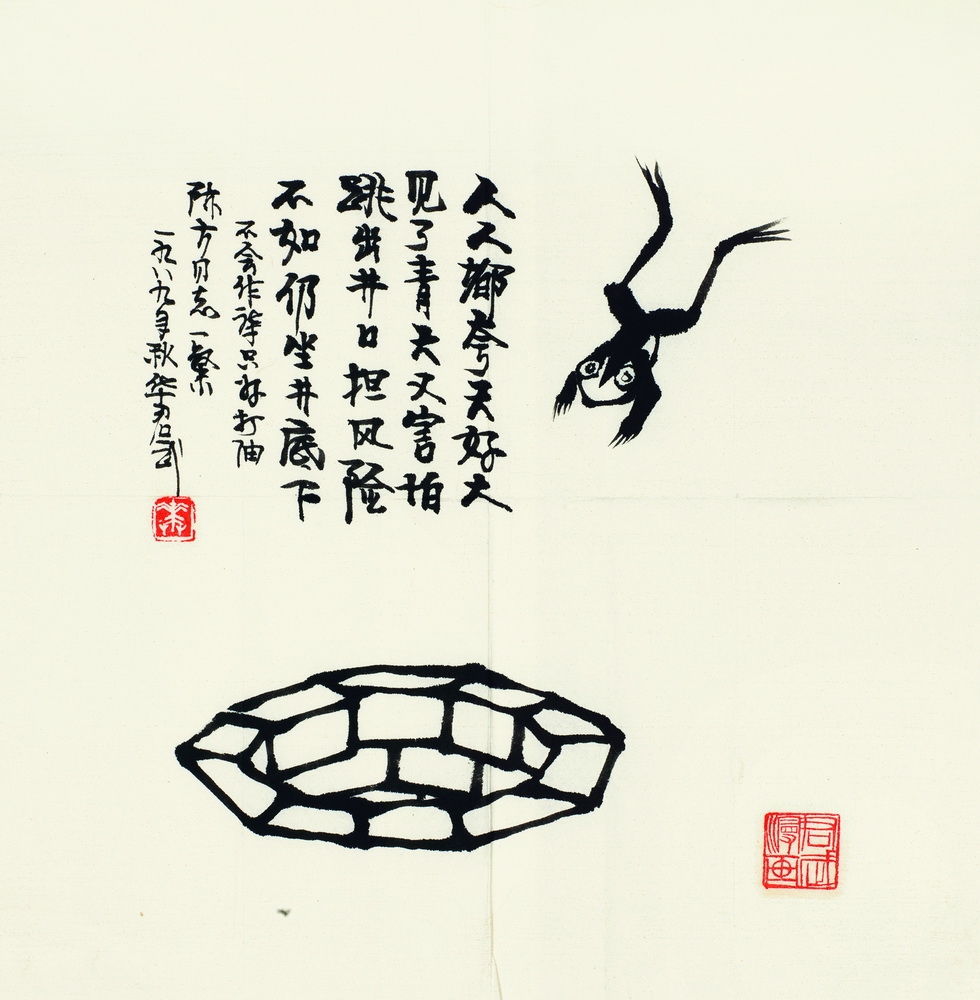 人人都夸天好大
见了青天又害怕
跳出井口担风险
不如仍坐井底下
不会作诗只好打油
陈方同志一粲
一九八九年秋华君武
华
君武漫画